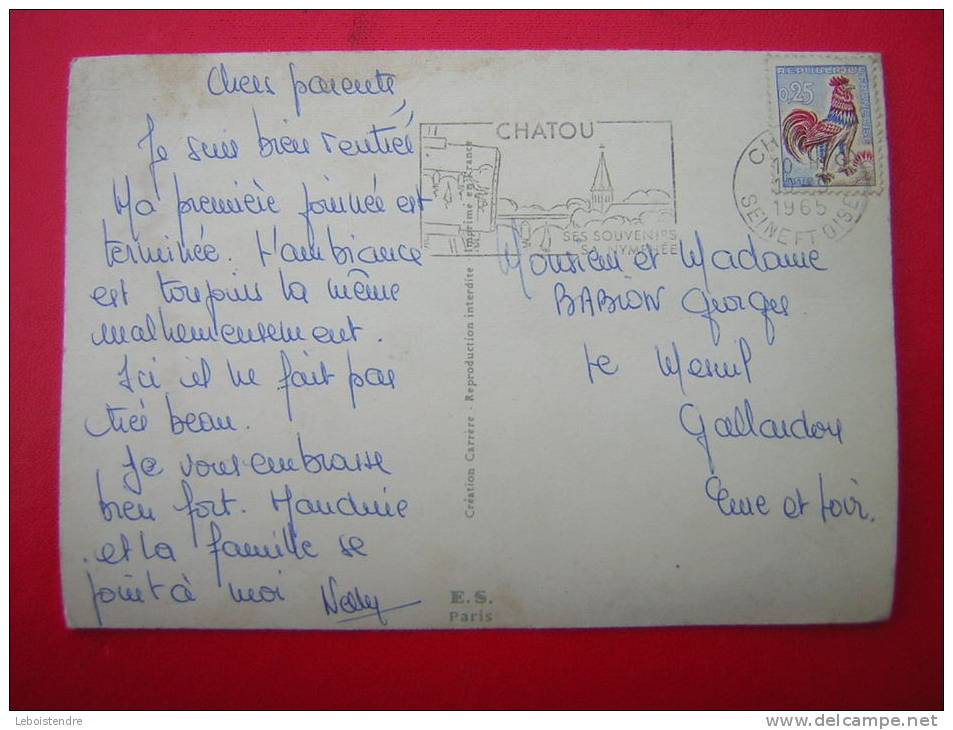 Chers parents
Je suis bien rentrée
Ma première journée est
terminée. L'ambiance
est toujours la même
malheureusement.
Ici il ne fait pas
très beau.
Je vous embrasse
bien fort.
et la famille se
joint à moi Nelly
CHATOU
SES SOUVENIRS
SA NYMPHÉE
REPUBLIQUE FRANÇAISE
0,25
1965
SEINE ET OISE
Monsieur et Madame
BABION Georges
Le Mesnil
Gallardon
Eure et Loir.
Création Carrère - Reproduction interdite - Imprimé en France
E.S.
Paris
Leboistendre
www.delcampe.net